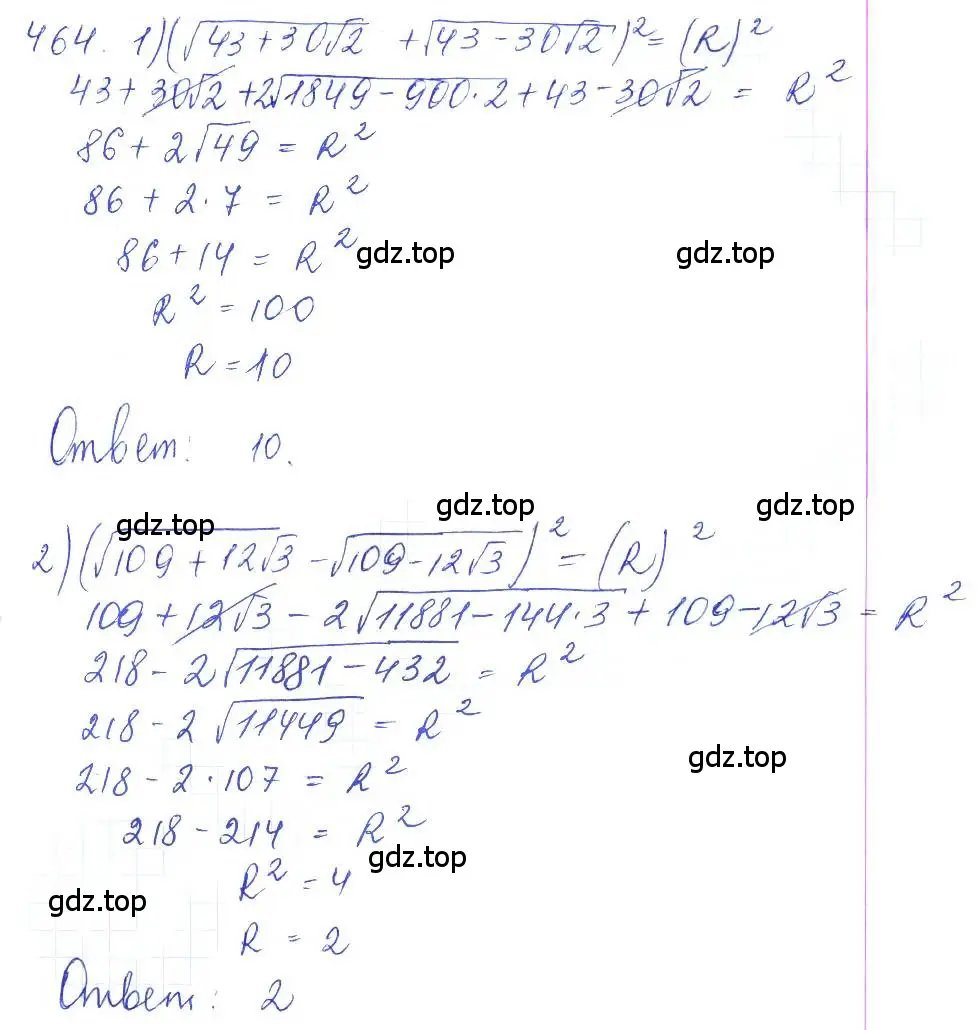 464. 1) (√(43+30√2) + √(43-30√2))² = (R)²
43 + 30√2 + 2√(1849 - 900·2) + 43 - 30√2 = R²
86 + 2√49 = R²
86 + 2·7 = R²
86 + 14 = R²
gdz.top gdz.top
R² = 100
R = 10
Ответ: 10.
gdz.top gdz.top gdz.top
2) (√(109+12√3) - √(109-12√3))² = (R)²
109 + 12√3 - 2√(11881 - 144·3) + 109 - 12√3 = R²
218 - 2√(11881 - 432) = R²
218 - 2√11449 = R²
gdz.top
218 - 2·107 = R²
218 - 214 = R²
gdz.top
R² = 4
gdz.top
R = 2
Ответ: 2